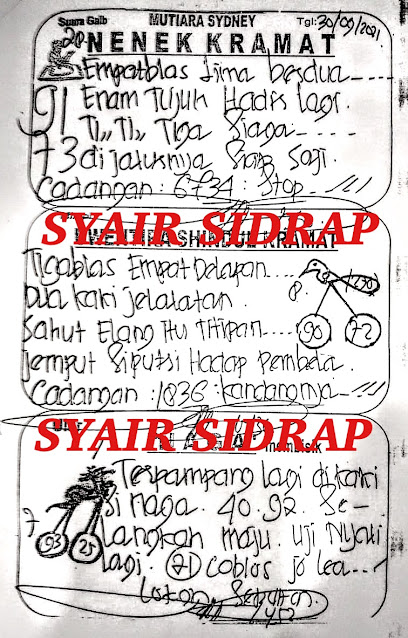 Suara Gaib MUTIARA SYDNEY Tgl: 30/09/2021
20 NENEK KRAMAT
Empatblas lima berdua
91 Enam Tujuh Hadir lagi.
Tiga Siaga
73 di jaluknya Siap Saji.
Cadangan: 6734: Stop
SYAIR SIDRAP
KRAMAT
Tigablas Empat Delapan
Dua kaki jelalatan.
8.
Sahut Elang Itu Titipan
90 72
Jemput Siputsi Hadap Pembeta.
Cadangan: 1836: kandangnya
SYAIR SIDRAP
Terpampang lagi di kaki
Si naga. 40.92. Se-
7
langkah maju. Uji Nyali
93 25
lagi. 71 coblos jo lea